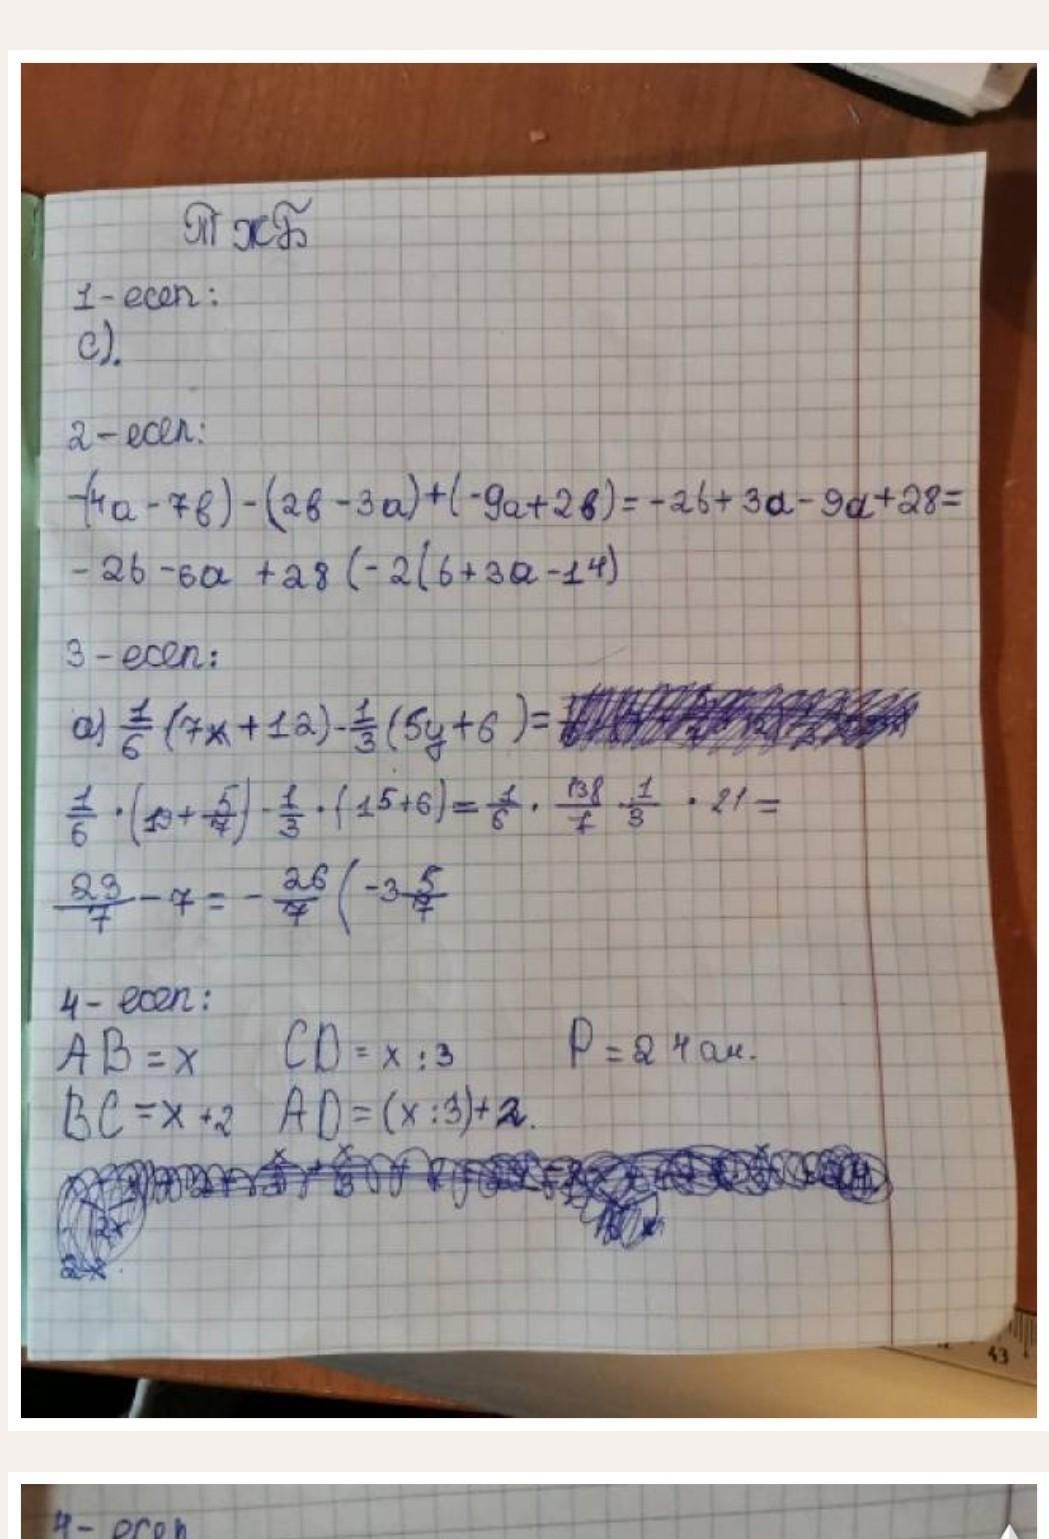 ТЖБ
1-есеп:
с).
2-есеп:
-(4a-7b)-(2b-3a)+(-9a+2b)=-2b+3a-9a+28=
-2b-6a+28(-2(b+3a-14)
3-есеп:
a) 1/6 (7x+12)-1/3(5y+6)=
1/6·(19+5/7)-1/3·(15+6)=1/6·138/7 1/3·21=
23/7-7=-26/7(-3 5/7
4-есеп:
AB=x CD=x:3 P=24 
BC=x+2 AD=(x:3)+2.
2x
4-есеп
43